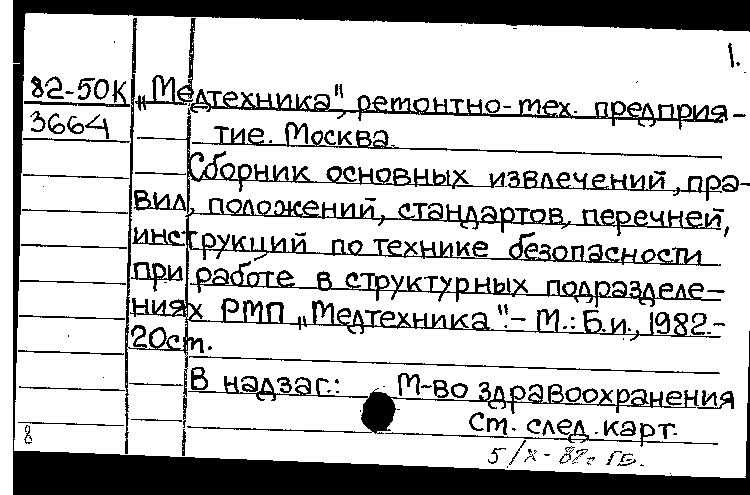 1.
82-50К „Медтехника", ремонтно-тех. предприя-
3664 тие. Москва.
Сборник основных извлечений, пра-
вил, положений, стандартов, перечней,
инструкций по технике безопасности
при работе в структурных подразделе-
ниях РМП „Медтехника".- М.: Б.и., 1982.-
20см.
В надзаг.: М-во здравоохранения
См. след. карт.
8
5/X-82г. ГБ.